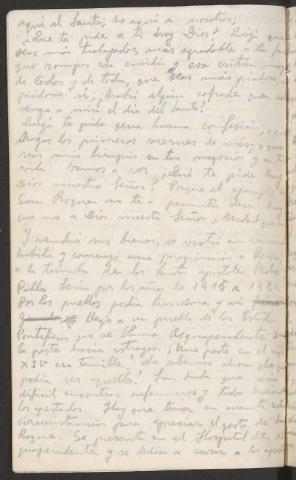 aquí al Santo; he aquí a nosotros;
¿Qué te pide a ti hoy Dios? Quizá que
seas más trabajador, más agradable a tu
que rompas esa envidia, y esa crítica
de todos y de todo, que seas más piadoso,
piadoso sí; ¿habrá algún cofrade que no
venga a misa el día del Santo?
Quizá te pida una buena confesión, o que
hagas los primeros viernes de mes; o que
seas más limpio en tus negocios y en tu
vida. Vamos a ver, ¿Qué te pide hoy
Dios nuestro Señor? Porque el
San Roque no te a permite
que no a Dios nuestro Señor, ¿verdad que
Y vendió sus bienes, se vistió un
hábito y comenzó una peregrinación a Roma,
a la tumba de los santos apóstoles Pedro
Pablo. Sería por los años de 1315 a 132
Por los pueblos pedía limosna y así
llegó a un pueblo de los Estados
Pontificios que se llama Acquapendente
la peste hacía estragos. ¡Una peste en el siglo
XIV era terrible! No sabemos ahora lo que
podía ser aquello! Sin duda que era
difícil encontrar enfermeros y todos
los apestados. Hay que tener en cuenta estas
circunstancias para apreciar el gesto de San
Roque. Se presenta en el Hospital de Ac-
quapendente y se dedica a curar a los apes-